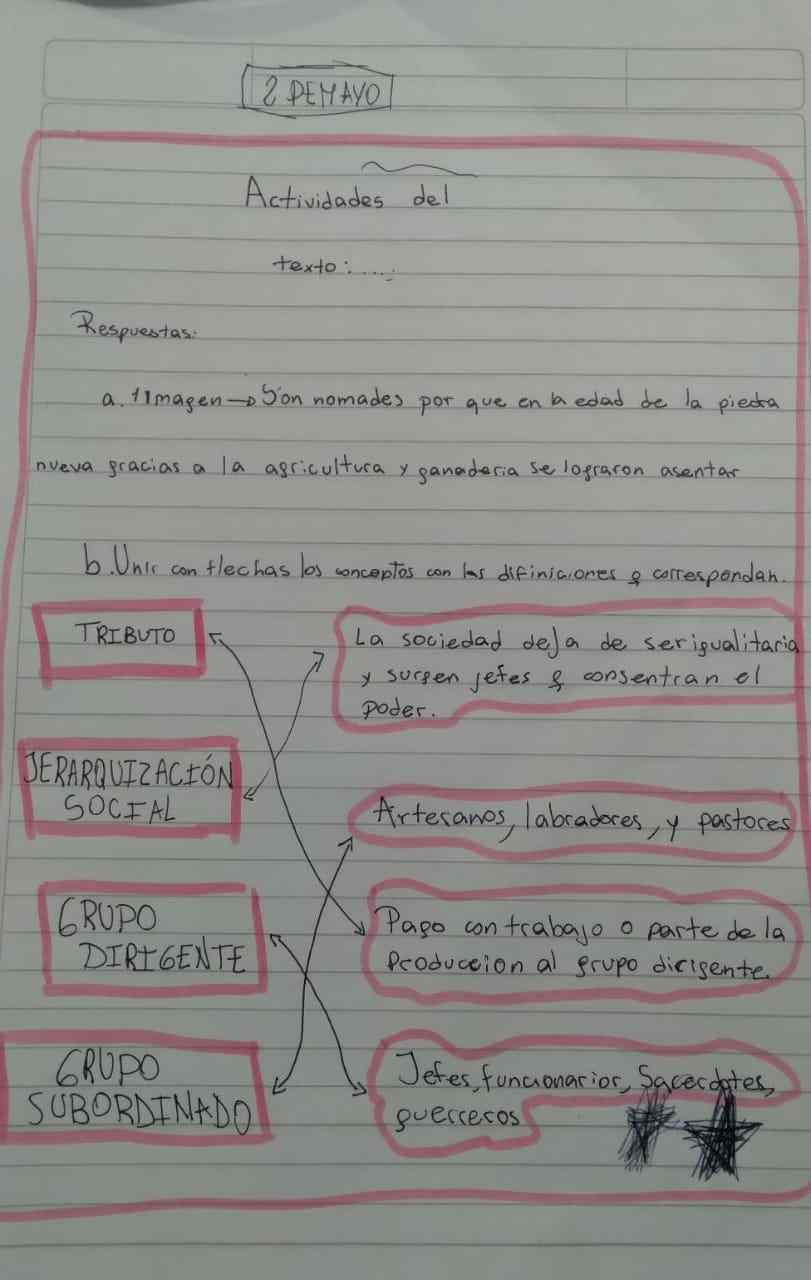 2 DE MAYO
Actividades del
texto:.....
Respuestas:
a. 1 Imagen → Son nomades por que en la edad de la piedra
nueva gracias a la agricultura y ganaderia se lograron asentar
b. Unir con flechas los conceptos con las difiniciones q correspondan.
TRIBUTO
La sociedad deja de ser igualitaria
y surgen jefes q consentran el
poder.
JERARQUIZACIÓN
SOCIAL
Artesanos, labradores, y pastores
GRUPO
DIRIGENTE
Pago con trabajo o parte de la
Produccion al grupo dirigente.
GRUPO
SUBORDINADO
Jefes, funcionarior, Sacerdotes,
guerreros